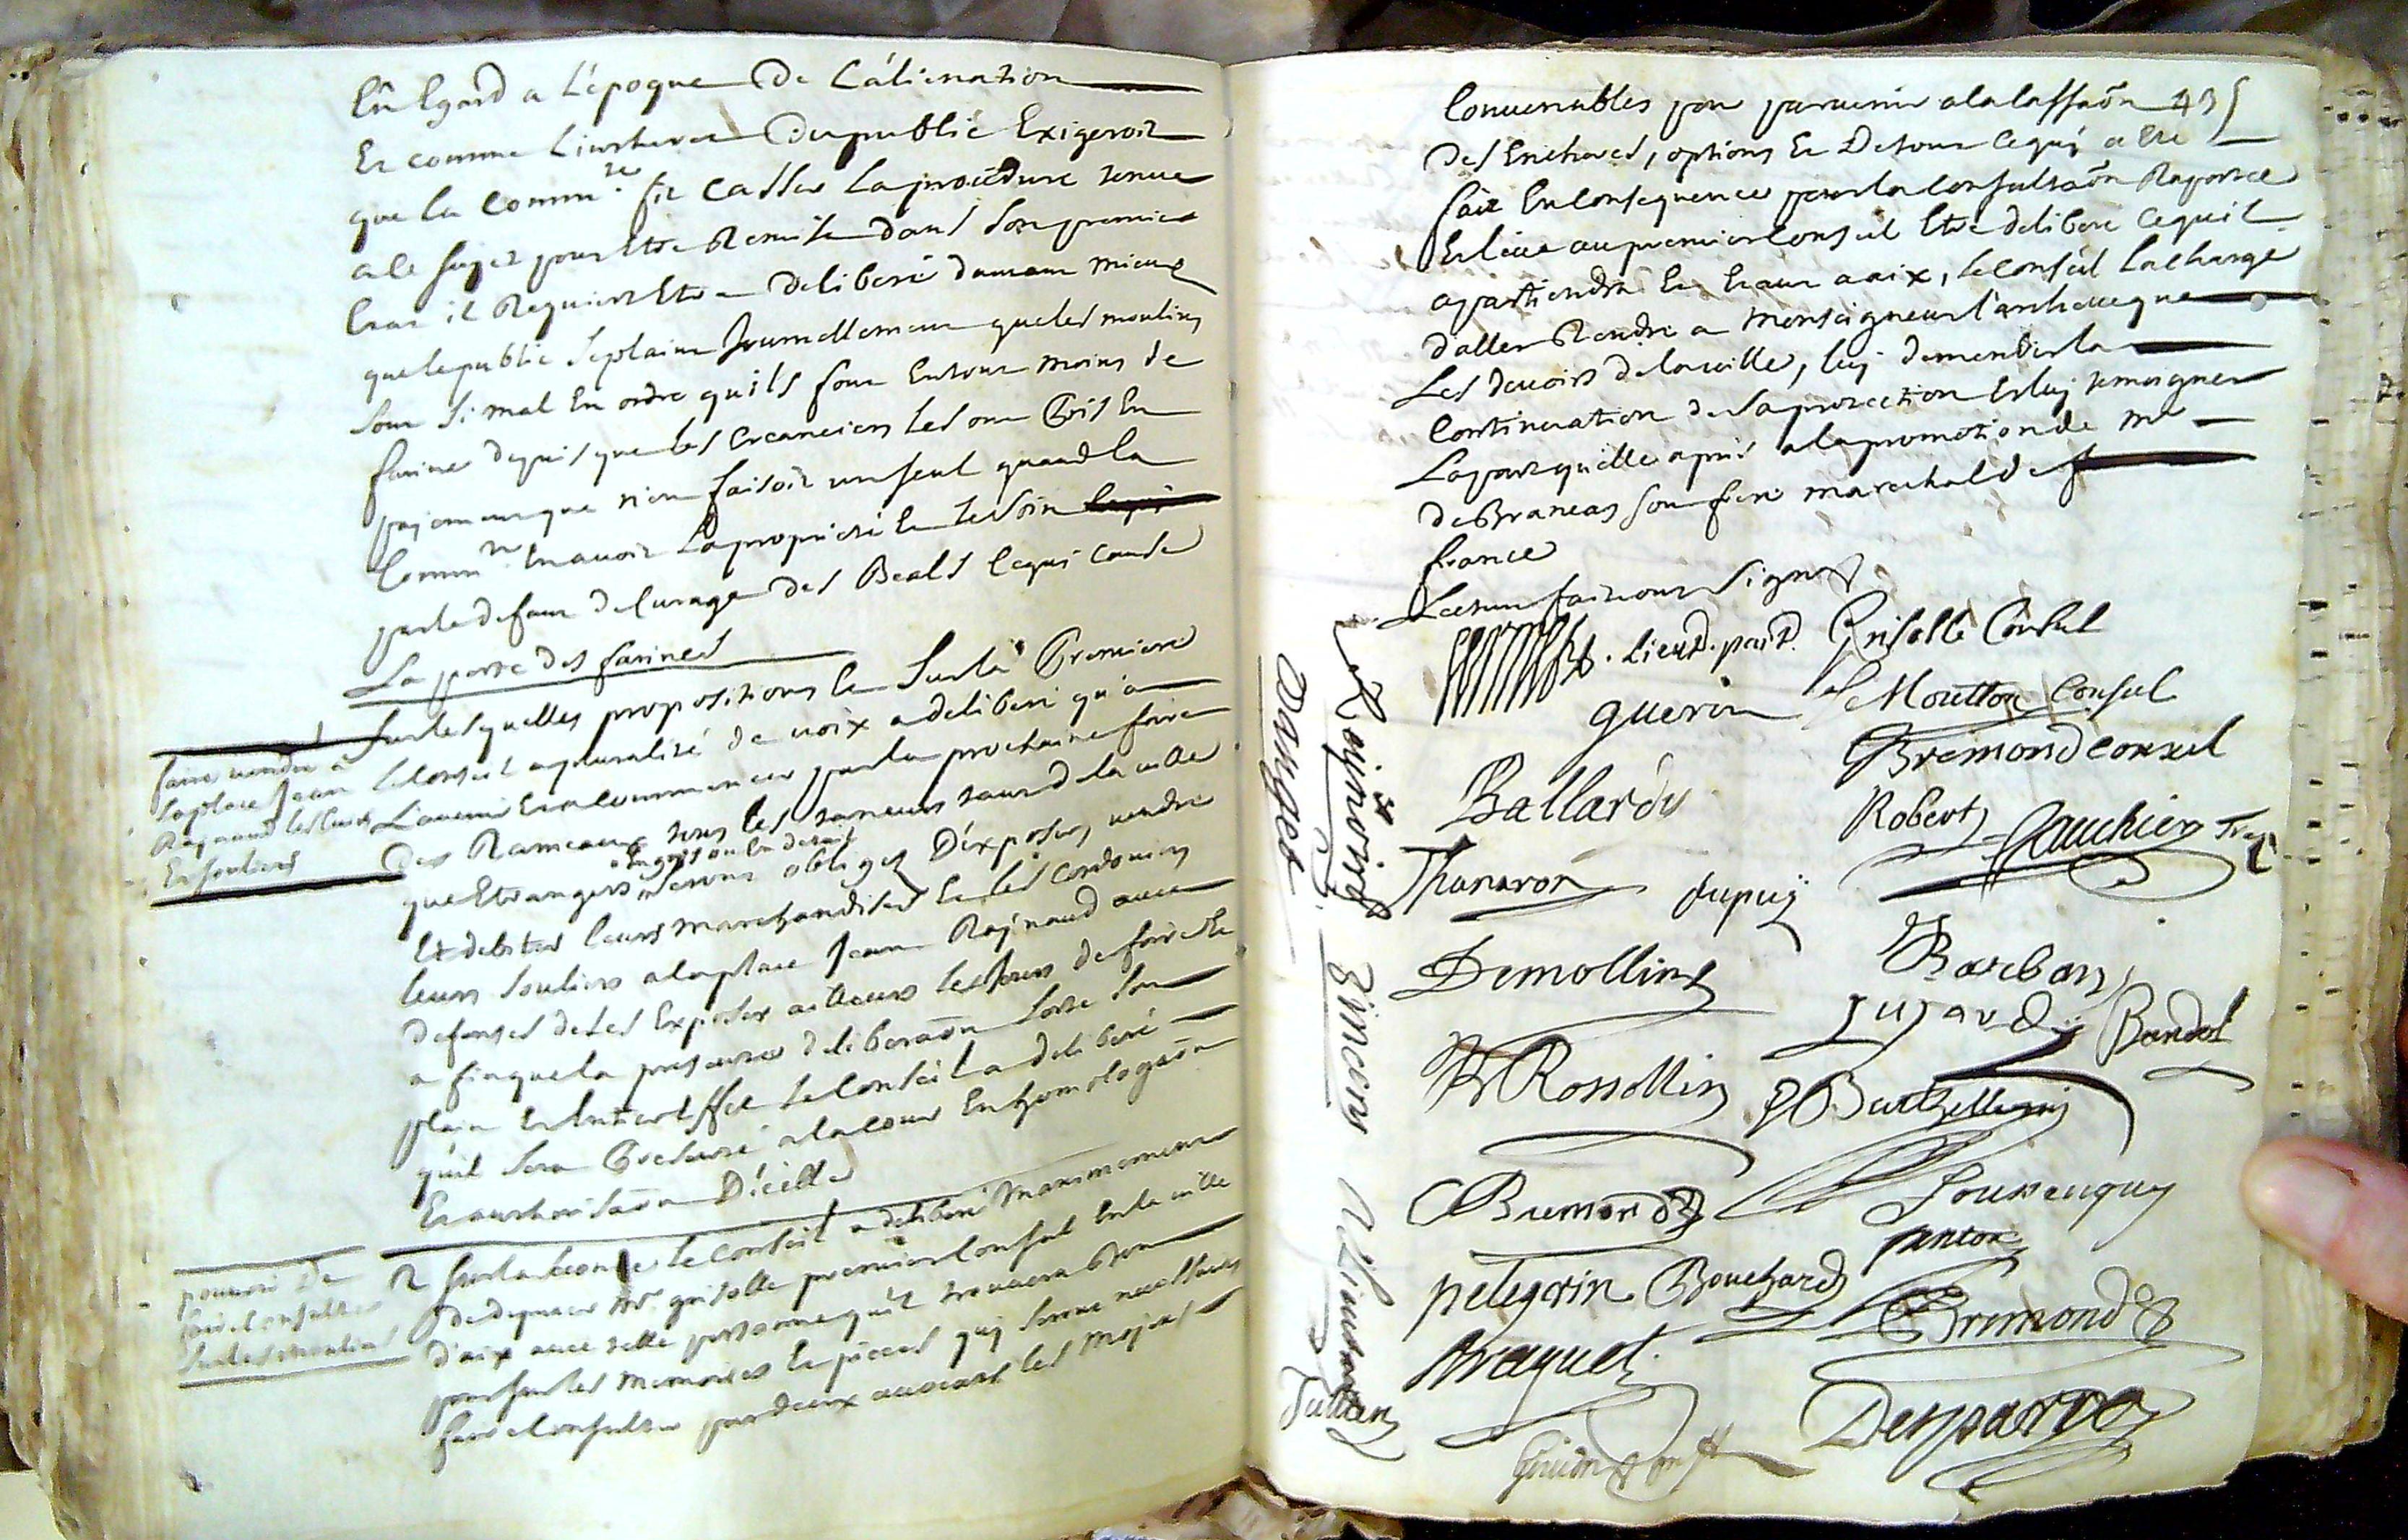 Eû Egard a L'epoque De L'alienation
Et comme L'interest du publié Exigeroit
que la comm.te fit Casser La procédure tenue
a ce sujet pour Etre Remise dans son premier
Etat il Requiert Etre deliberé dautant mieux
que le public se plaint Journellement que les moulins
sont si mal En ordre qu'ils font Entout moins de
farine depuis que les creanciers les ont pris En
payement que n'en faisoit un seul quand la
Comm.te En avoit La proprieté Et le soin
par le defaut de Curage des Beals Ce qui cause
La perte des farines
faire vendre à
la place Jean
Raynaud les Cuirs
Et souliers
Sur lesquelles propositions Et Sur la Premiere
le Conseil a pluralité de voix a deliberé qu'a
L'avenir Et a Commencer par la prochaine foire
Des Rameaux tous les taneurs tant de la ville
en gros ou En detail
que Etrangers seront obliges D'exposer, vendre
Et debiter leurs marchandises Et les Cordoniers
leurs souliers a la place Jean Raynaud avec
defenses de les Exposer ailleurs les Jours de foire Et
a fin que la presente deliberaôn sorte son
plain Et Entier Effet le Conseil a deliberé
qu'il sera Presenté a la cour En homologaôn
Et authorisaôn D'icelle
pouvoir de
faire Consulter
sur les moulins
2 Sur la seconde le Conseil a deliberé Unanimement
de deputer Mr. grisolle premier Consul En la ville
d'aix avec telle personne qu'il trouvera Bon
pour sur les memoires Et pieces quj seront necessaires
faire Consulter par deux avocats les moyens
Convenables pour parvenir a la Cassaôn 495
des Encheres, options Et Detour Ce quj a Eté
fait En Consequence pour la Consultaôn Raportée
Et leüe au premier Conseil Etre deliberé Ce quil
apartiendra Et Etant a aix, le Conseil La charge
d'aller Rendre a Monseigneur l'archeveque
Les devoirs de la ville, luj demender la
Continuation de sa protection Et luj temoigner
La part quelle a pris a la promotion de Mr
de Brancas son frere marechal de
france
Lecture faite ont Signés
Lieut. part. Grisolle Consul
guerin Moutton Consul
Ballardy Bremond consul
Robert Gauthier Tres
Thanaron dupuÿ
Demollins Barbary
Jujardy Bandol
Rossollin Barthellemy
Bremond Joussenquy
panton
pelegrin Bouchard
Araquet Bremond
Desparra
Danget
Raynoird
Eimeric
Julien